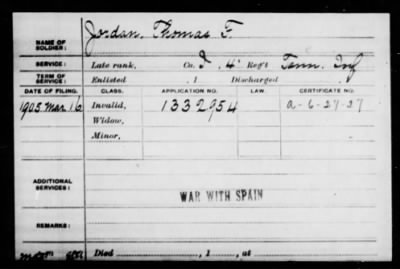 NAME OF SOLDIER: Jordan, Thomas F.
SERVICE: Late rank, Co. I, 4" Reg't Tenn. Inf
TERM OF SERVICE: Enlisted , 1 Discharged , 1
DATE OF FILING. CLASS. APPLICATION NO. LAW. CERTIFICATE NO.
1905 Mar 16 Invalid, 1332954 a-6-27-27
Widow,
Minor,
ADDITIONAL SERVICES:
WAR WITH SPAIN
REMARKS:
Died , 1 , at